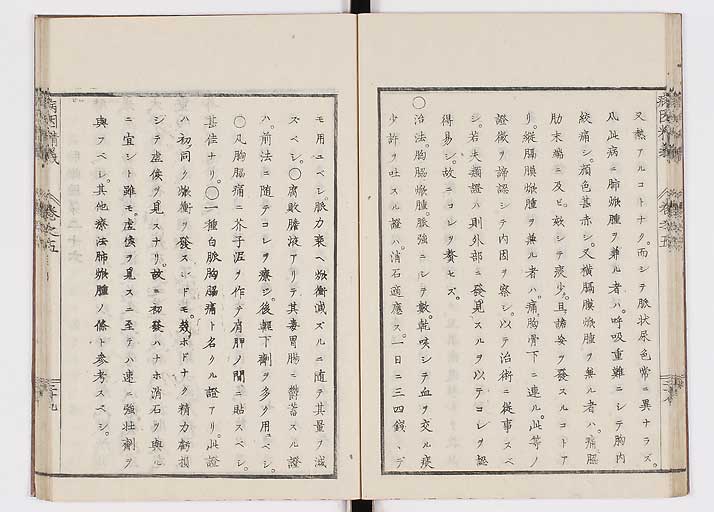 又熱アルコトナク。而シテ脉状尿色常ニ異ナラズ。
凡此病ニ肺焮腫ヲ兼ル者ハ。呼吸重難ニシテ胸内
絞痛シ。顔色甚赤シ。又横膈膜焮腫ヲ兼ル者ハ。痛脇
肋末端ニ及ビ。欬シテ痰少。且譫妄ヲ發スルコトア
リ。縦膈膜焮腫ヲ兼ル者ハ。痛胸骨下ニ連ル。此等ノ
證徴ヲ諦認シテ内因ヲ察シ。以テ治術ニ從事スベ
シ。若夫觸證ハ則外部ニ發見スルヲ以テコレヲ認
得易シ。故ニコレヲ贅セズ。
○治法。胸脇焮腫。脉強ニシテ數。乾咳シテ血ヲ交ル痰
少許ヲ吐スル證ハ。消石適應ス。一日ニ三四錢ニ
モ用ユベシ。脉力衰ヘ焮衝減ズルニ随テ其量ヲ減
ズベシ。○腐敗膽液アリテ其毒胃腸ニ欝蓄スル證
ハ。前法ニ随テコレヲ療シ。後輕下劑ヲ多ク用ユベシ。
○凡胸脇痛ニ芥子泥ヲ作テ肩胛ノ間ニ貼スベシ。
甚佳ナリ。○一種白脉胸脇痛ト名クル證アリ。此證
ハ初同ク焮衝ヲ發スレドモ。幾ホドナク精力虧損
シテ虚候ヲ見スナリ。故ニ初發ハナホ消石ヲ與ル
ニ宜シト雖モ。虚候ヲ見スニ至テハ速ニ強壮劑ヲ
與フベシ。其他療法肺焮腫ノ條ト参考スベシ。
病因精義
卷之五
二十九